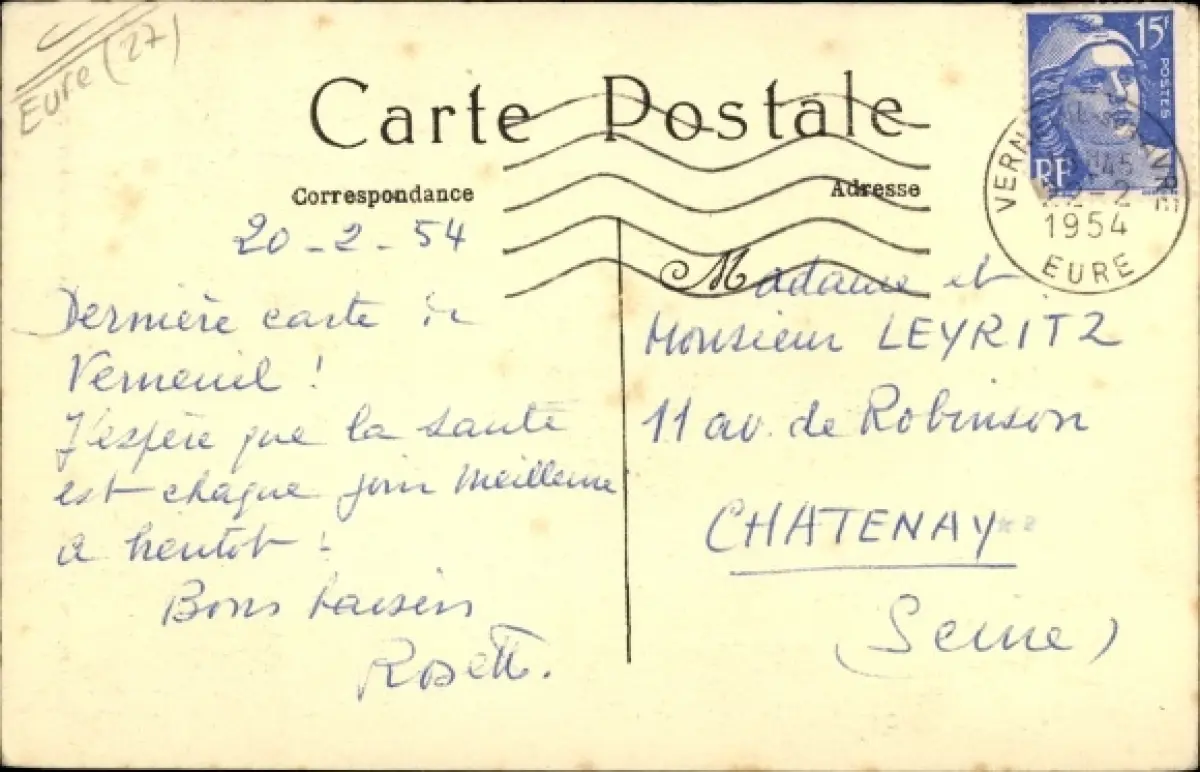 Eure (27)
Carte Postale
Correspondance
Adresse
20-2-54
Dernière carte de
Verneuil !
J'espère que la santé
est chaque jour meilleure
a bientot !
Bons baisers
Rosette.
Madame et
Monsieur LEYRITZ
11 av. de Robinson
CHATENAY
(Seine)
15F
POSTES
RF
VERN
45
22-2
1954
EURE